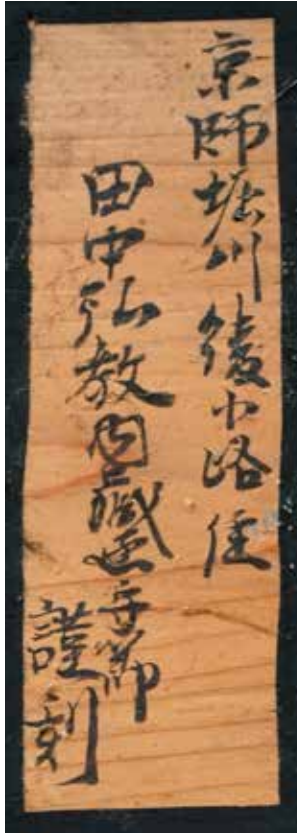 京師堀川綾小路住
田中弘教内蔵守節
謹刻